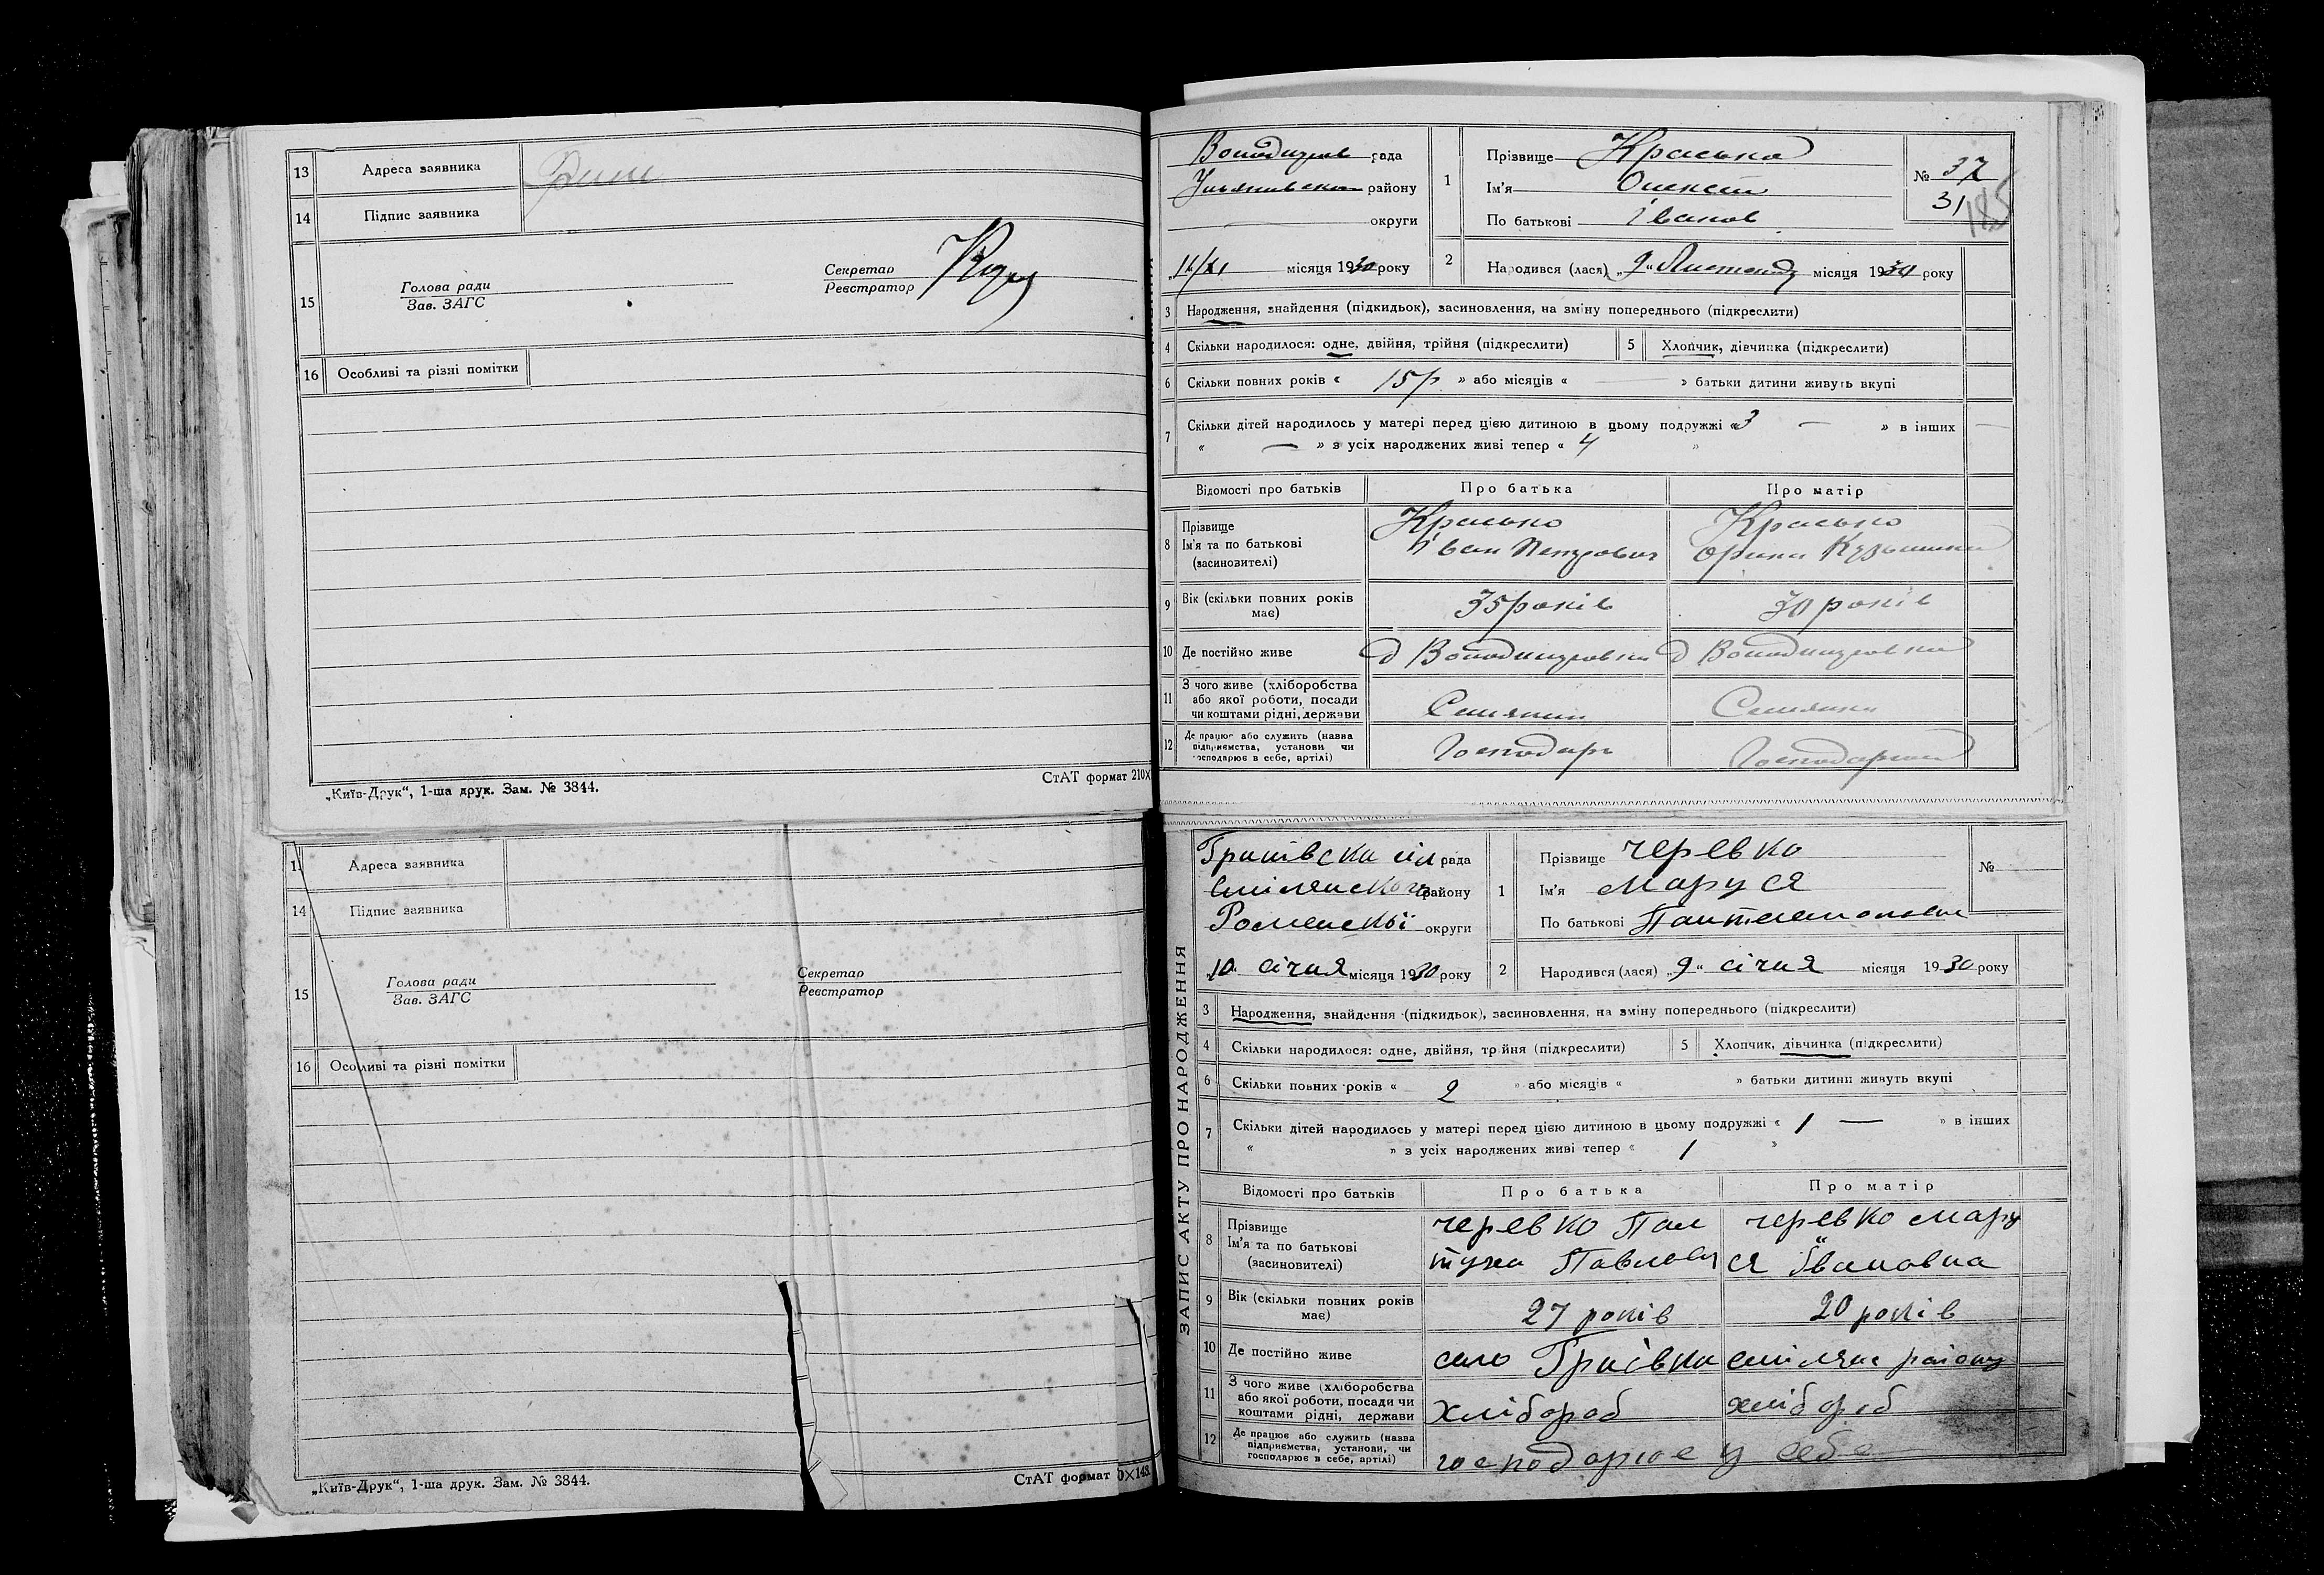 13 Адреса заявника
14 Підпис заявника
15 Голова ради
Зав. ЗАГС
Секретар
Реєстратор
16 Особливі та різні помітки
„Київ-Друк“, 1-ша друк. Зам. № 3844.
СтАТ формат 210X
13 Адреса заявника
14 Підпис заявника
15 Голова ради
Зав. ЗАГС
Секретар
Реєстратор
16 Особливі та різні помітки
„Київ-Друк“, 1-ша друк. Зам. № 3844.
СтАТ формат 0×148
рада
району
округи
11/XI місяця 1930 року
1 Прізвище Красько
Ім'я Олексій
По батькові Іванов
№ 37
31
185
2 Народився (лася) „9“ Листопад місяця 1930 року
3 Народження, знайдення (підкидьок), засиновлення, на зміну попереднього (підкреслити)
4 Скільки народилося: одне, двійня, трійня (підкреслити)
5 Хлопчик, дівчинка (підкреслити)
6 Скільки повних років « 15 р. » або місяців « — » батьки дитини живуть вкупі
7 Скільки дітей народилось у матері перед цією дитиною в цьому подружжі « 3 — » в інших
« — » з усіх народжених живі тепер « 4 »
Відомості про батьків Про батька Про матір
8 Прізвище
Ім'я та по батькові
(засиновителі)
Красько
Іван Петрович
Красько
Орина
9 Вік (скільки повних років
має)
35 років
30 років
10 Де постійно живе
11 З чого живе (хліборобства
або якої роботи, посади
чи коштами рідні, держави
Селянин
Селянка
12 Де працює або служить (назва
підприємства, установи чи
господарює в себе, артілі)
Господарь
ЗАПИС АКТУ ПРО НАРОДЖЕННЯ
рада
району
Роменськи округи
„10“ січня місяця 1930 року
1 Прізвище черевко
Ім'я Маруся
По батькові
№
2 Народився (лася) „9“ січня місяця 1930 року
3 Народження, знайдення (підкидьок), засиновлення, на зміну попереднього (підкреслити)
4 Скільки народилося: одне, двійня, трійня (підкреслити)
5 Хлопчик, дівчинка (підкреслити)
6 Скільки повних років « 2 » або місяців « » батьки дитини живуть вкупі
7 Скільки дітей народилось у матері перед цією дитиною в цьому подружжі « 1 — » в інших
« » з усіх народжених живі тепер « 1 »
Відомості про батьків Про батька Про матір
8 Прізвище
Ім'я та по батькові
(засиновителі)
черевко
черевко Мару
ся Івановна
9 Вік (скільки повних років
має)
27 років
20 років
10 Де постійно живе
село
11 З чого живе (хліборобства
або якої роботи, посади чи
коштами рідні, держави
хлібороб
хлібороб
12 Де працює або служить (назва
підприємства, установи, чи
господарює в себе, артілі)
господарює у себе